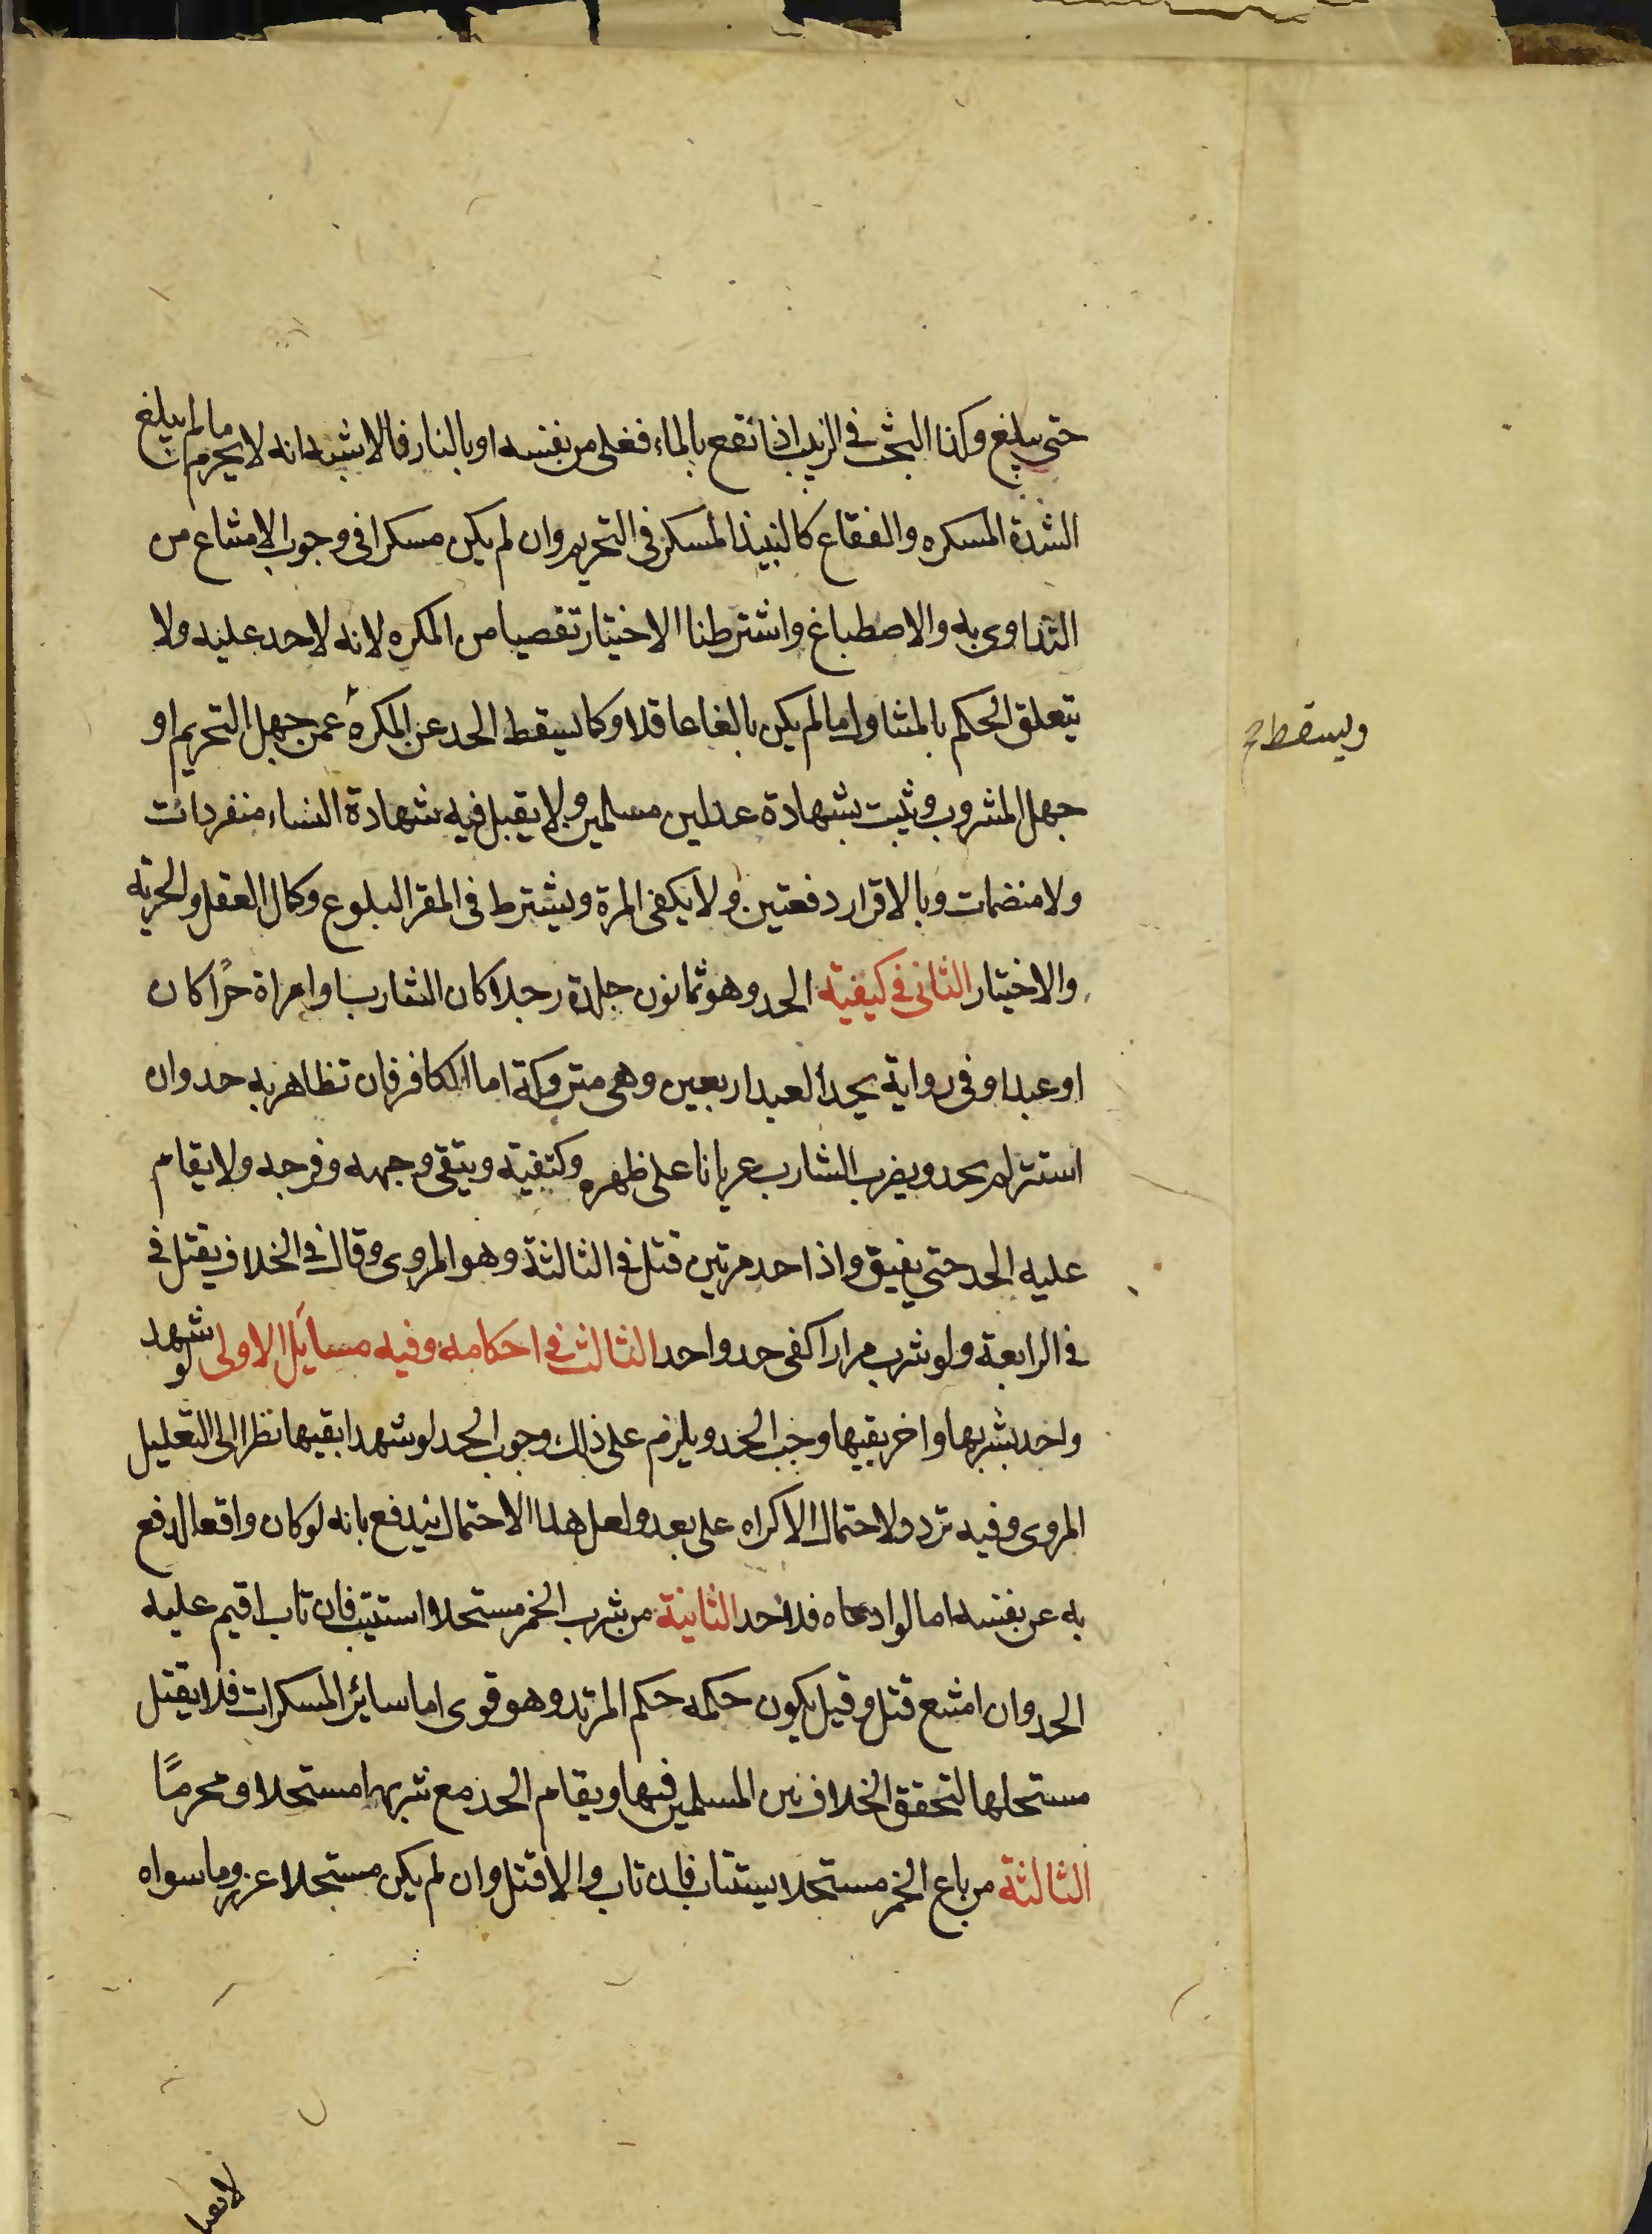 حتى يبلغ وكذا البحث في الزبيب اذا نقع بالماء فغلى من نفسه او بالنار فالاشبه انه لا يحرم ما لم يبلغ
الشدة المسكره والفقاع كالنبيذ المسكر في التحريم وان لم يكن مسكرا في وجوب الامتناع من
التداوى به والاصطباغ واشترطنا الاختيار تفصيا من المكره لانه لا حد عليه ولا
يتعلق الحكم بالمتناول ما لم يكن بالغا عاقلا وكما يسقط الحد عن المكره عمن جهل التحريم او
ويسقط
جهل المشروب وثبت بشهادة عدلين مسلمين ولا يقبل فيه شهادة النساء منفردات
ولا منضمات وبالاقرار دفعتين ولا يكفى المرة ويشترط في المقر البلوغ وكمال العقل والحرية
والاختيار الثانى في كيفية الحد وهو ثمانون جلدة رجلا كان الشارب او امراة حرًا كان
او عبدا وفى رواية يحد العبد اربعين وهى متروكة اما الكافر فان تظاهر به حد وان
استتر لم يحد ويضرب الشارب عريانا على ظهره وكتفيه ويتقى وجهه وفرجه ولا يقام
عليه الحد حتى يفيق واذا حد مرتين قتل في الثالثة وهو المروى وقال في الخلاف يقتل في
في الرابعة ولو شرب مرارا كفى حد واحد الثالث في احكامه وفيه مسايل الاولى لو شهد
واحد بشربها واخر بقيها وجب الحد ويلزم على ذلك وجوب الحد لو شهدا بقيها نظرا الى التعليل
المروى وفيه تردد لاحتمال الاكراه على بعد ولعل هذا الاحتمال يندفع بانه لو كان واقعا لدفع
به عن نفسه اما لو ادعاه فلا حد الثانية من شرب الخمر مستحلا استتيب فان تاب اقيم عليه
الحد وان امتنع قتل وقيل يكون حكمه حكم المرتد وهو قوى اما سائر المسكرات فلا يقتل
مستحلها لتحقق الخلاف بين المسلمين فيها ويقام الحد مع شربها مستحلا ومحرمًا
الثالثة من باع الخمر مستحلا يستتاب فان تاب والا قتل وان لم يكن مستحلا عزر وما سواه